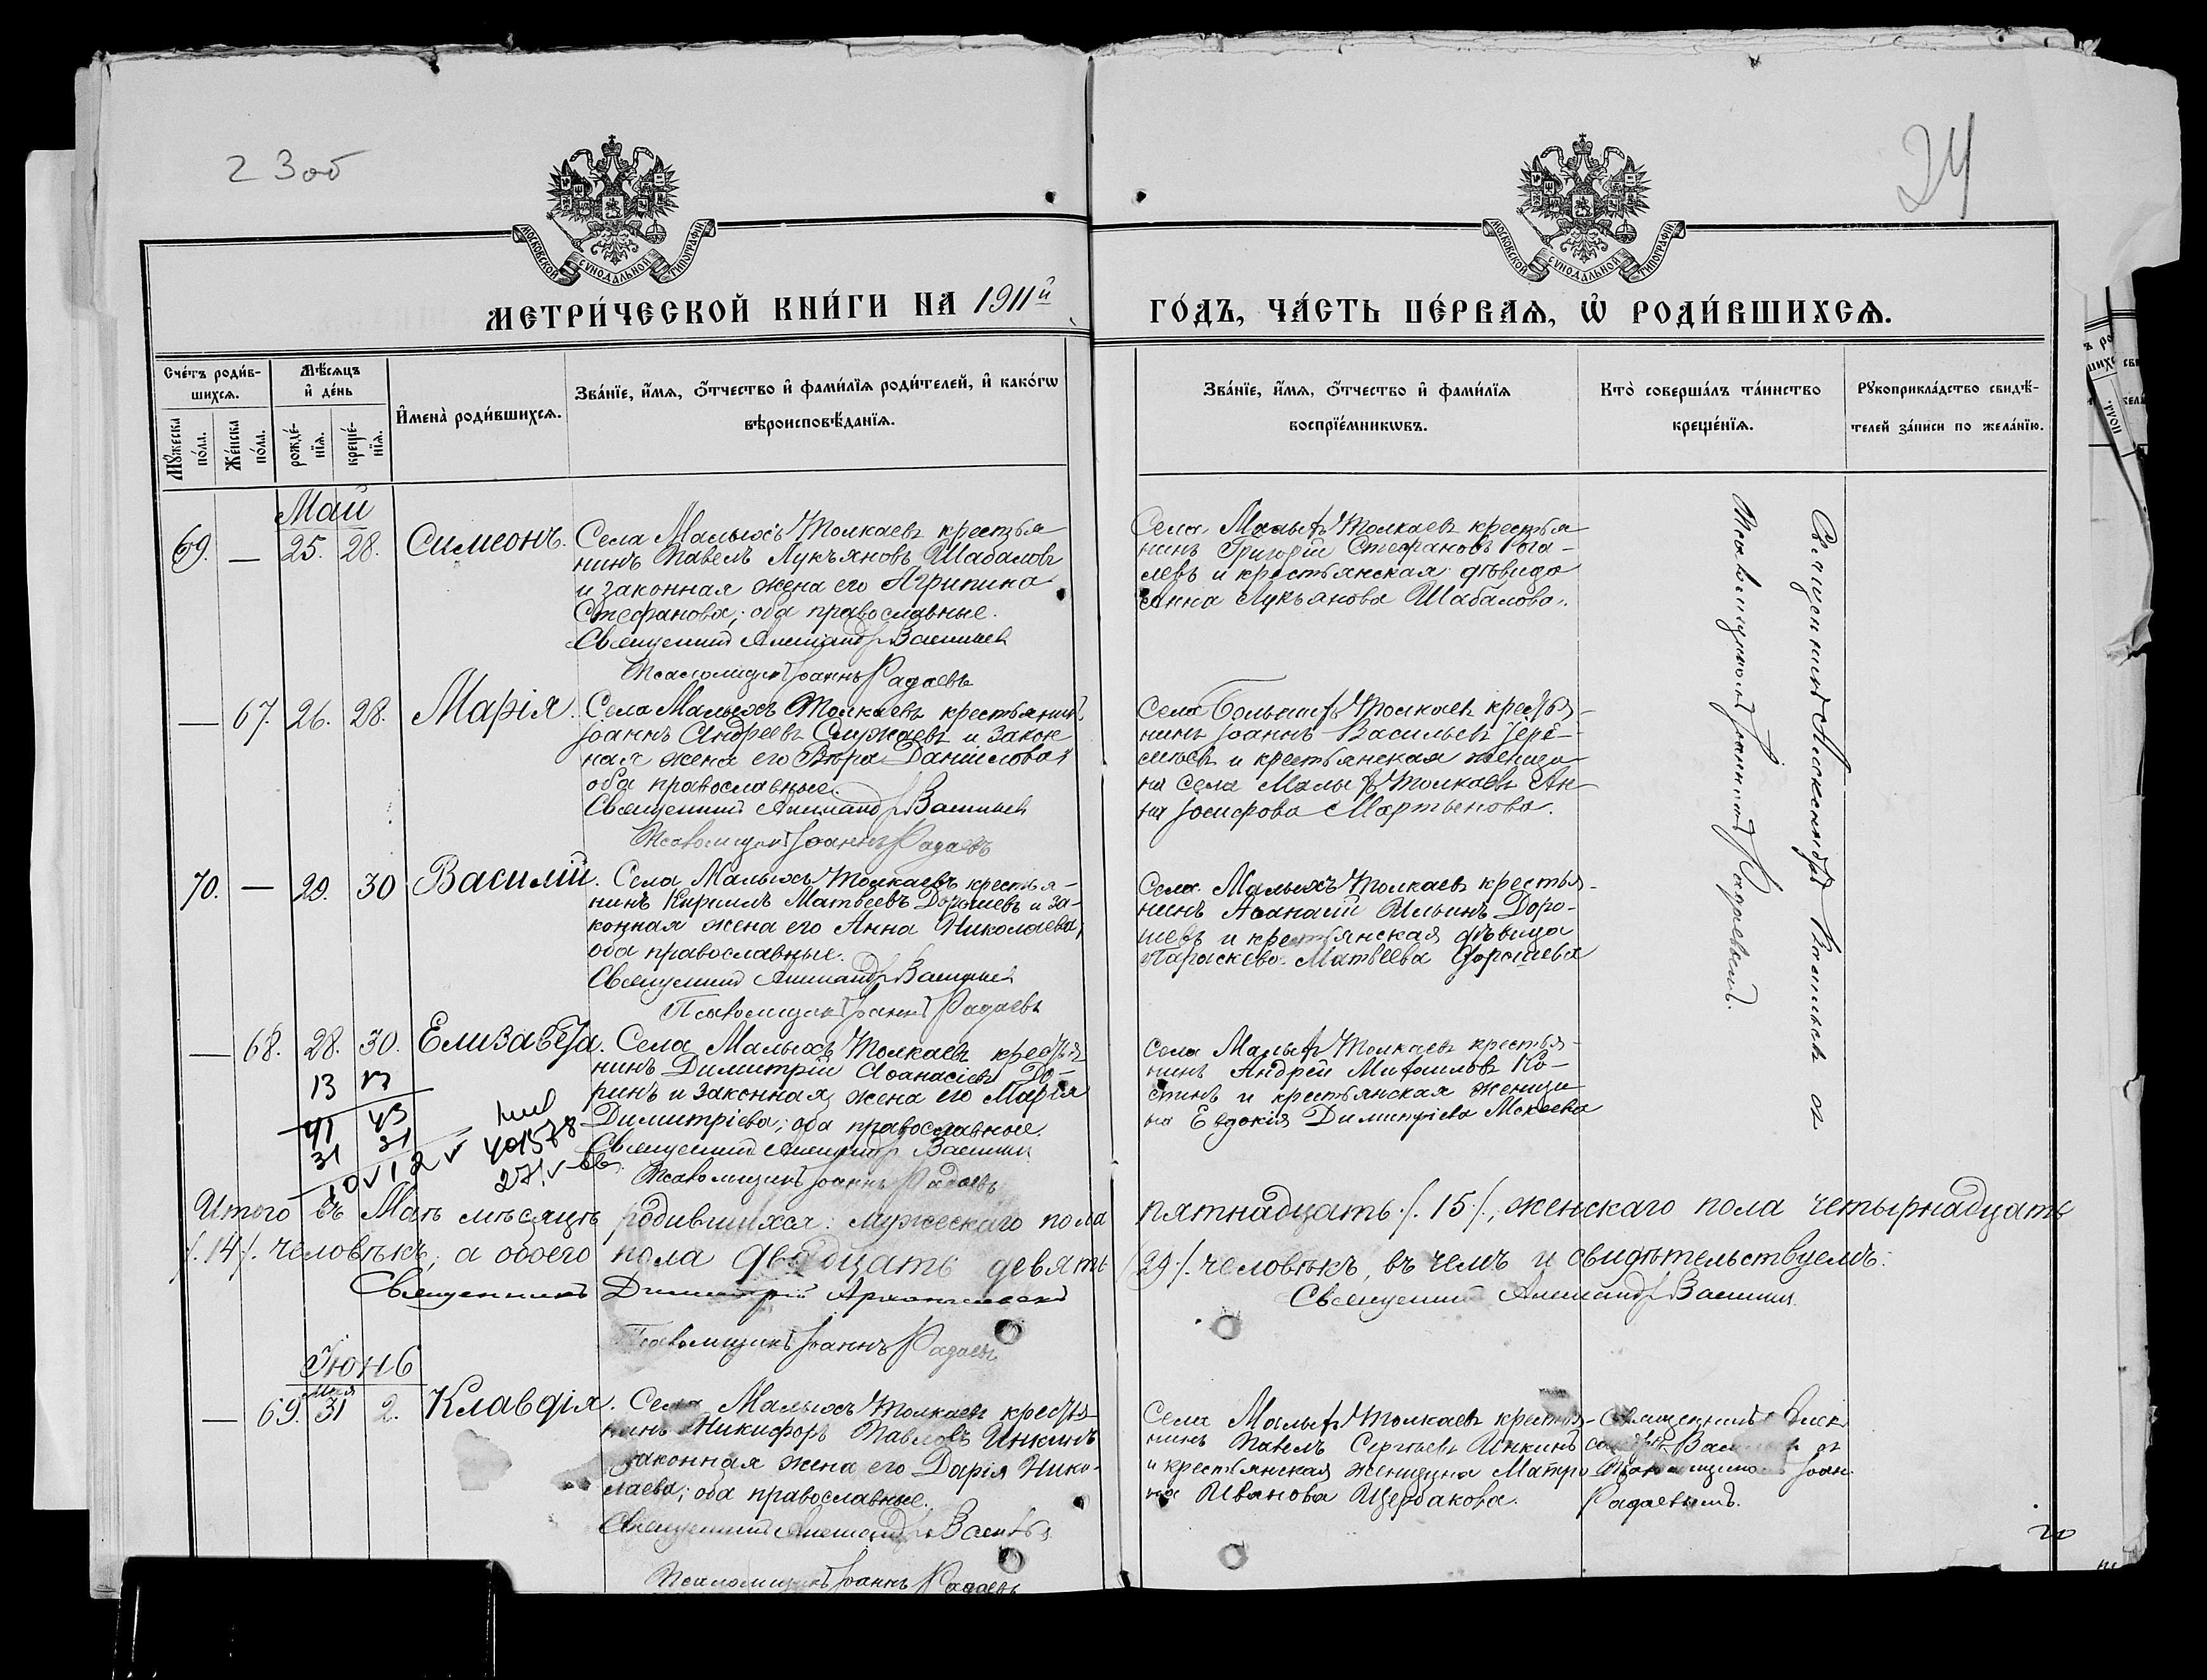 23об
24
МОСКОВСКОЙ СУНОДАЛЬНОЙ ТИПОГРАФІИ
МОСКОВСКОЙ СУНОДАЛЬНОЙ ТИПОГРАФІИ
МЕТРИ́ЧЕСКОЙ КНИ́ГИ НА 1911й
ГО́ДЪ, ЧА́СТЬ ПЕ́РВАѦ, Ѡ҆ РОДИ́ВШИХСѦ.
Сче́тъ роди́в-
шихсѧ.
Мѣ́сѧцъ
и҆ де́нь
Мꙋ́жеска
по́ла.
Же́нска
по́ла.
рожде́-
нїѧ.
креще́-
нїѧ.
И҆мена̀ роди́вшихсѧ.
Зва́нїе, и҆́мѧ, ѻ҆́тчество и҆ фами́лїѧ роди́телей, и҆ како́гѡ
вѣроисповѣ́данїѧ.
Зва́нїе, и҆́мѧ, ѻ҆́тчество и҆ фами́лїѧ
воспрїе́мникѡвъ.
Кто̀ соверша́лъ та́инство
креще́нїѧ.
Рꙋкоприкла́дство свидѣ́-
телей за́писи по жела́нїю.
Май
69. — 25. 28. Симеонъ.
Села Малыхъ Толкаевъ крестья
нинъ Павелъ Лукъяновъ Шабаловъ
и законная жена его Агрипина
Стефанова; оба православные.
Священникъ Александръ Васильевъ
Псаломщикъ Іоаннъ Радаевъ
Села Малыхъ Толкаевъ крестья
нинъ Григорій Стефановъ Рога-
левъ и крестьянская дѣвица
Анна Лукъянова Шабалова.
— 67. 26. 28. Марія.
Села Малыхъ Толкаевъ крестьянинъ
Іоаннъ Андреевъ Служаевъ и закон
ная жена его Данилова;
оба православные.
Священникъ Александръ Васильевъ
Псаломщикъ Іоаннъ Радаевъ
Села Большихъ Толкаевъ крестья-
нинъ Іоаннъ Васильевъ Іере-
и крестьянская женщи-
на села Малыхъ Толкаевъ Ан-
на Іосифова Мартынова.
70. — 29. 30 Василій.
Села Малыхъ Толкаевъ крестья-
нинъ Кириллъ Матвеевъ Дорошевъ и за-
конная жена его Анна Николаева;
оба православные.
Священникъ Александръ Васильевъ
Псаломщикъ Іоаннъ Радаевъ
Села Малыхъ Толкаевъ крестья-
нинъ Аѳанасій Ильинъ Доро-
шевъ и крестьянская дѣвица
Параскева Матвеева Дорошева
— 68. 28. 30. Елизавета.
Села Малыхъ Толкаевъ крестья
нинъ Димитрій Аѳанасіевъ До-
ринъ и законная жена его Марія
Димитріева; оба православные.
Священникъ Александръ Васильевъ
Псаломщикъ Іоаннъ Радаевъ
Села Малыхъ Толкаевъ крестья-
нинъ Андрей Михаиловъ Ко-
стинъ и крестьянская женщи-
на Евдокія Димитріева Мокеева
Священникъ Александръ Васильевъ съ
Псаломщикомъ Іоанномъ Радаевымъ.
13
41 43
31 31
401578
Итого въ Маѣ мѣсяцѣ родившихся: мужескаго пола
пятнадцать /.15/., женскаго пола четырнадцать
/.14/. человѣкъ; а обоего пола двадцать девять
/29/. человѣкъ, въ чемъ и свидѣтельствуемъ:
Священникъ Димитрій Архангельскій
Священникъ Александръ Васильевъ
Псаломщикъ Іоаннъ Радаевъ
Іюнь
— 69. мая 31 2. Клавдія.
Села Малыхъ Толкаевъ крестья-
нинъ Никифоръ Павловъ Инкинъ
законная жена его Дарія Нико-
лаева; оба православные.
Священникъ Александръ Васильевъ
Псаломщикъ Іоаннъ Радаевъ
Села Малыхъ Толкаевъ крестья-
нинъ Павелъ Сергѣевъ Инкинъ
и крестьянская женщина Матро
на Иванова Щербакова.
Священникъ Алек
сандръ Васильевъ съ
Псаломщикомъ Іоан.
Радаевымъ.